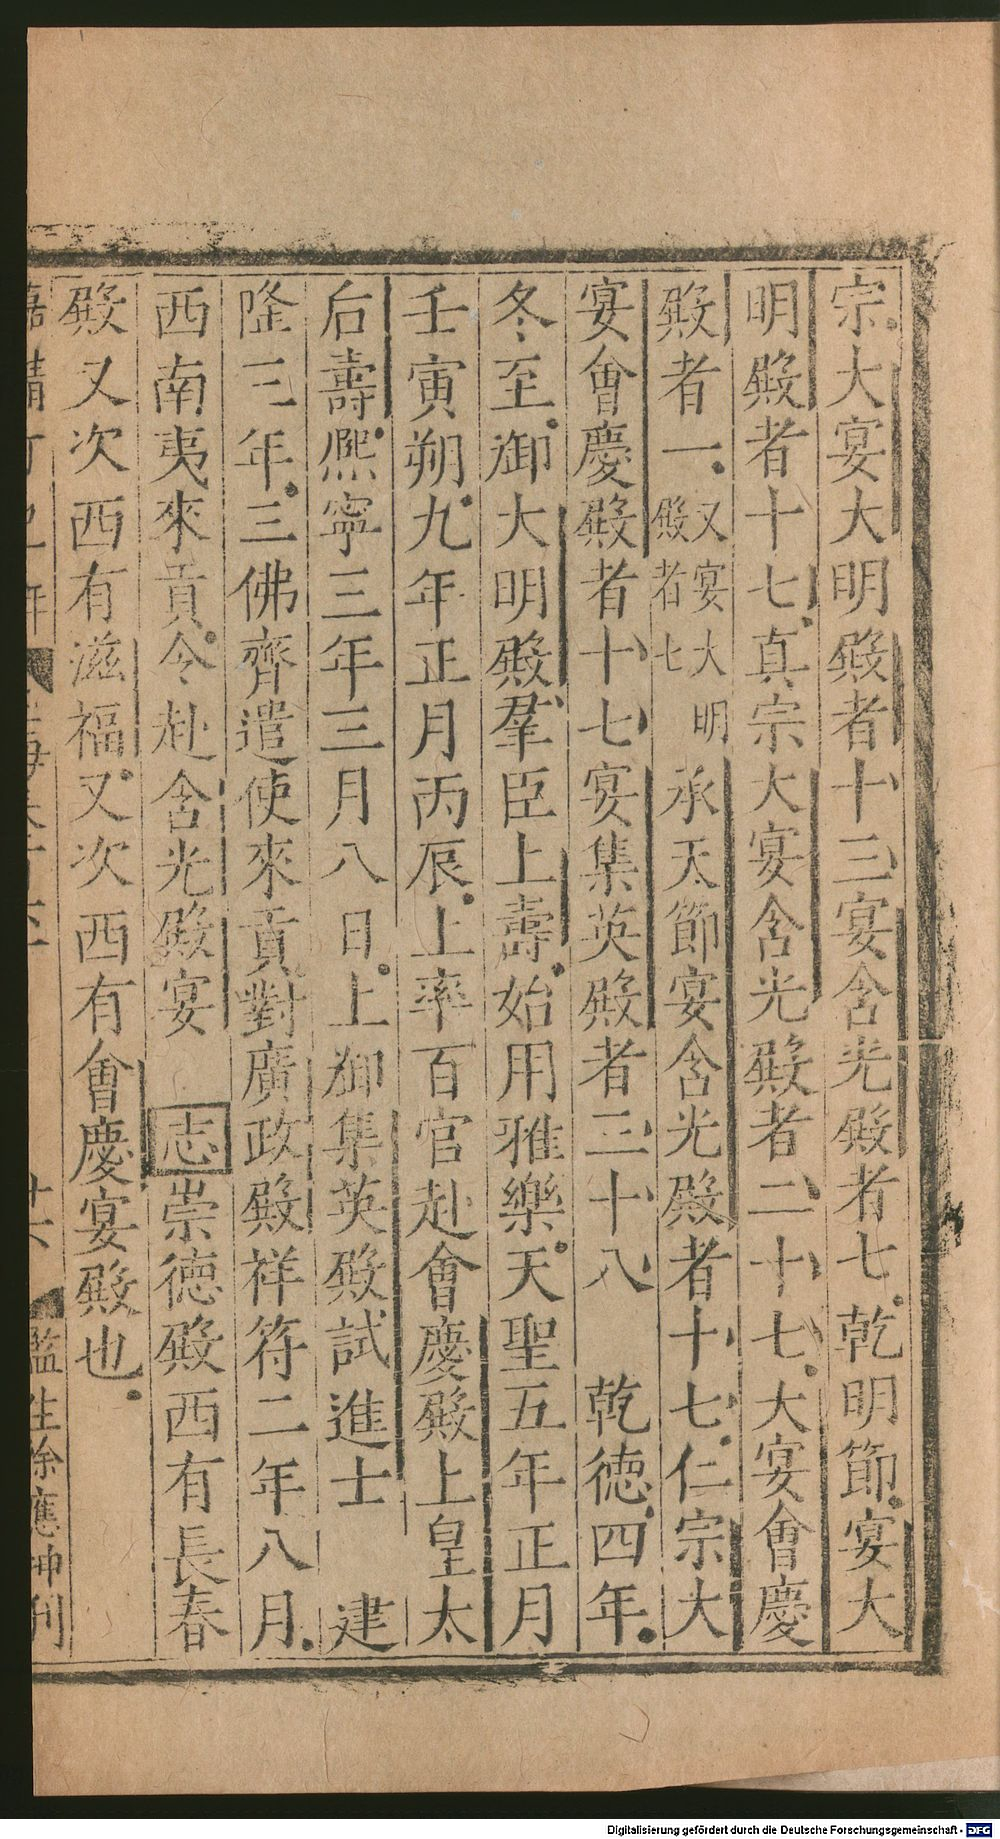 宗大宴大明殿者十三宴含光殿者七乾明節宴大
明殿者十七真宗大宴含光殿者二十七大宴會慶
殿者一又宴大明殿者七承天節宴含光殿者十七仁宗大
宴會慶殿者十七宴集英殿者三十八 乾德四年
冬至御大明殿羣臣上壽始用雅樂天聖五年正月
壬寅朔九年正月丙辰上率百官赴會慶殿上皇太
后壽熈寧三年三月八日上御集英殿試進士 建
隆三年三佛齊遣使來貢對廣政殿祥符二年八月
西南夷來貢令赴含光殿宴 志崇德殿西有長春
殿又次西有滋福又次西有會慶宴殿也
監生徐應 刊
Digitalisierung gefördert durch die Deutsche Forschungsgemeinschaft - DFG